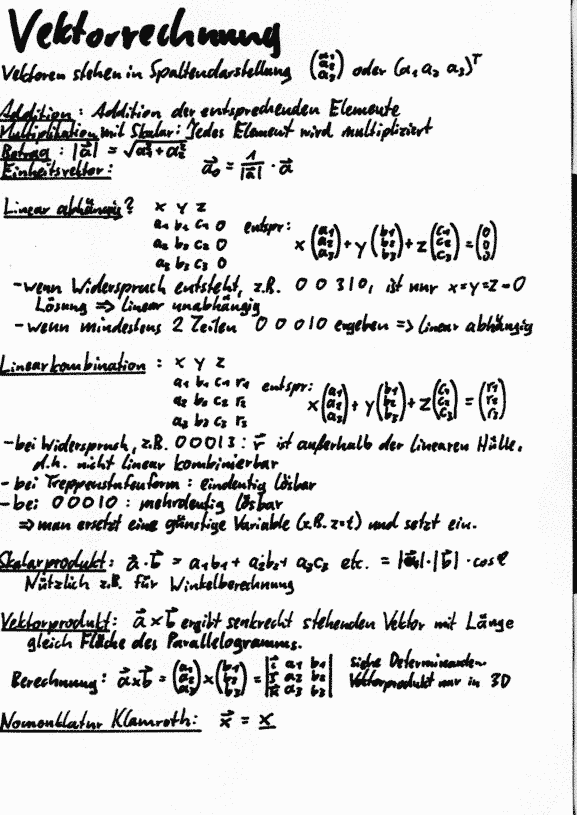 Vektorrechnung
Vektoren stehen in Spaltendarstellung (a₁ a₂ a₃) oder (a₁ a₂ a₃)ᵀ
Addition : Addition der entsprechenden Elemente
Multiplikation mit Skalar : Jedes Element wird multipliziert
Betrag : |a⃗| = √(a₁² + a₂²)
Einheitsvektor : a⃗₀ = 1/|a⃗| · a⃗
Linear abhängig? x y z
a₁ b₁ c₁ 0 entspr:
a₂ b₂ c₂ 0 x (a₁ a₂ a₃) + y (b₁ b₂ b₃) + z (c₁ c₂ c₃) = (0 0 0)
a₃ b₃ c₃ 0
- wenn Widerspruch entsteht, z.B. 0 0 3 | 0, ist nur x=y=z=0
Lösung => linear unabhängig
- wenn mindestens 2 Zeilen 0 0 0 | 0 ergeben => linear abhängig
Linearkombination : x y z
a₁ b₁ c₁ r₁ entspr:
a₂ b₂ c₂ r₂ x (a₁ a₂ a₃) + y (b₁ b₂ b₃) + z (c₁ c₂ c₃) = (r₁ r₂ r₃)
a₃ b₃ c₃ r₃
- bei Widerspruch, z.B. 0 0 0 | 3 : r⃗ ist außerhalb der linearen Hülle,
d.h. nicht linear kombinierbar
- bei Treppenstufenform : eindeutig lösbar
- bei 0 0 0 | 0 : mehrdeutig lösbar
=> man ersetzt eine günstige Variable (z.B. z=t) und setzt ein.
Skalarprodukt : a⃗ · b⃗ = a₁b₁ + a₂b₂ + a₃c₃ etc. = |a⃗| · |b⃗| · cos φ
Nützlich z.B. für Winkelberechnung
Vektorprodukt : a⃗ × b⃗ ergibt senkrecht stehenden Vektor mit Länge
gleich Fläche des Parallelogramms.
Berechnung : a⃗ × b⃗ = (a₁ a₂ a₃) × (b₁ b₂ b₃) = |i⃗ a₁ b₁ j⃗ a₂ b₂ k⃗ a₃ b₃| siehe Determinanten
Vektorprodukt nur in 3D
Nomenklatur Klamroth : x⃗ = x